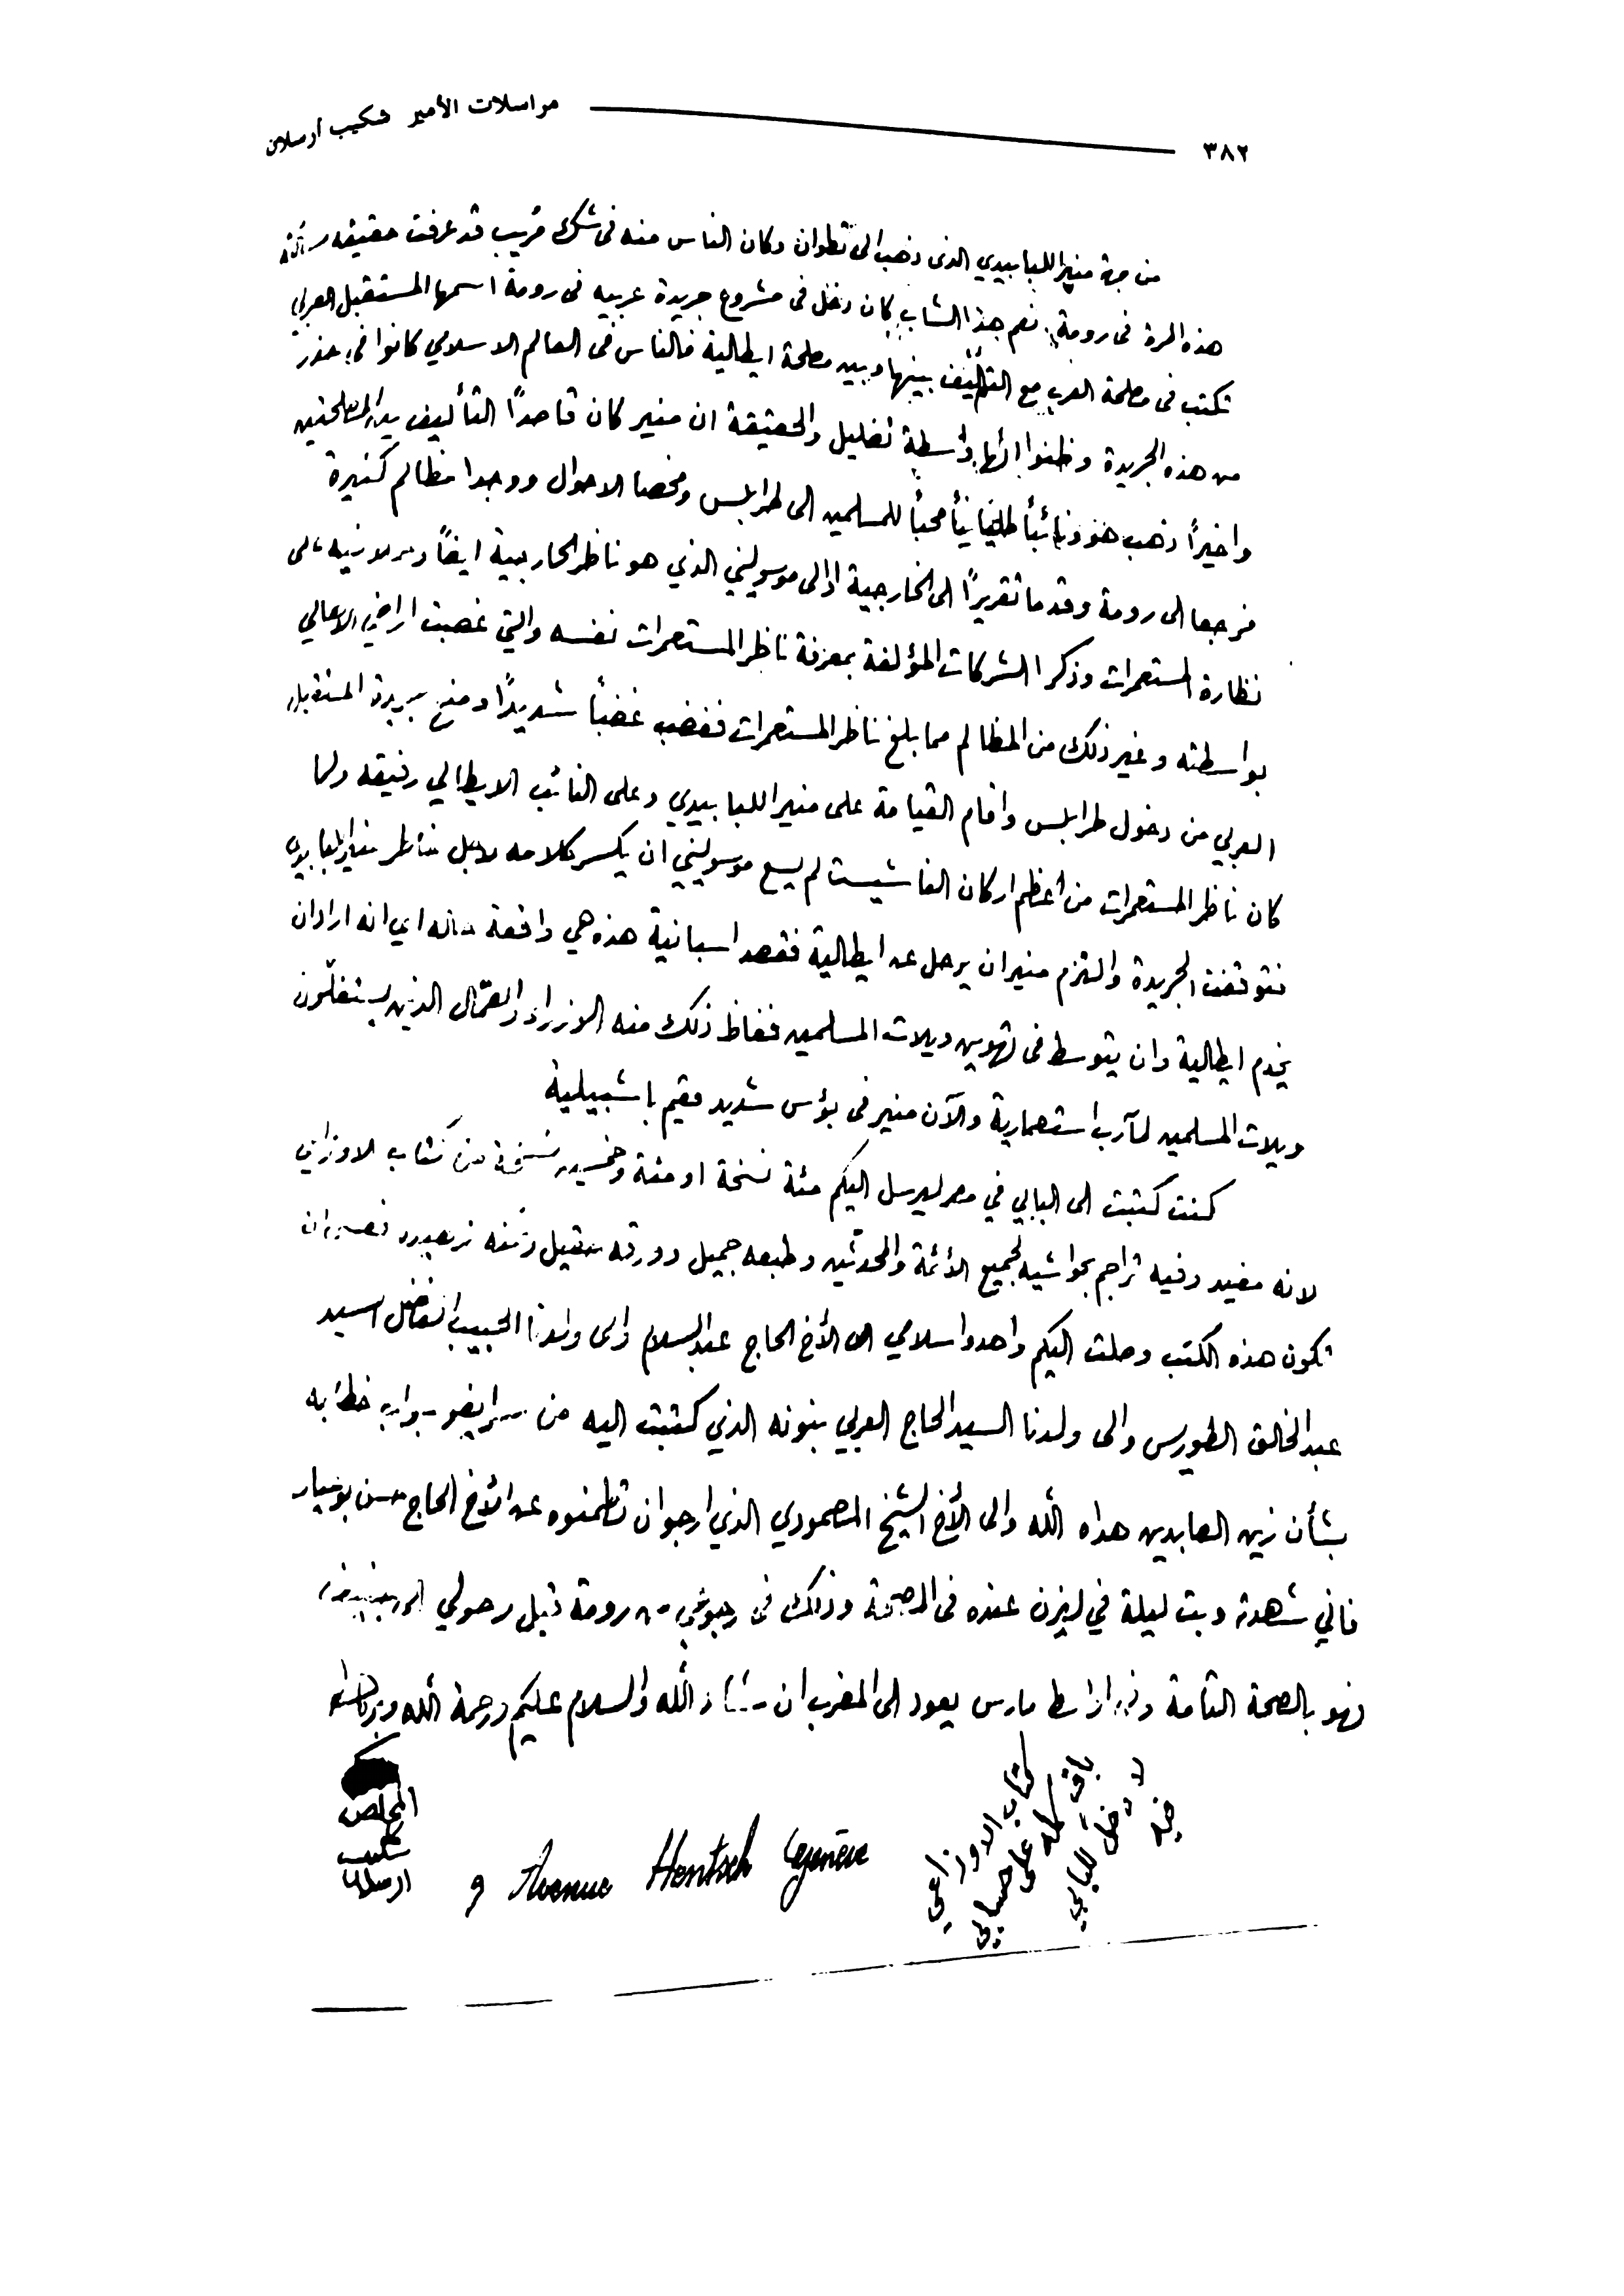 ٣٨٢ مراسلات الأمير شكيب أرسلان
من جهة منير اللبابيدي الذى ذهب الى تطوان وكان الناس منه فى شك مريب قد عرفت حقيقة مسألته
هذه المرة فى رومة نعم هذا الشاب كان دخل فى مشروع جريدة عربيه فى رومة اسمها المستقبل العربي
تكتب فى مصلحة العرب مع التأليف بينها وبين مصلحة ايطالية فالناس فى العالم الاسلامي كانوا فى حذر
من هذه الجريدة وظنوا انها واسطة تضليل والحقيقة ان منير كان قاصدًا التأليف بين المصلحتين
واخيرًا ذهب هو ونائباً محباً للمسلمين الى طرابلس وفحصا الاحوال ووجدا مظالم كثيرة
فرجعا الى رومة وقدما تقريرًا الى الخارجية الى موسوليني الذي هو ناظر الخارجية ايضاً
نظارة المستعمرات وذكرا الشركات المؤلفة بمعرفة ناظر المستعمرات نفسه والتي غصبت اراضي الاهالي
بواسطته وغير ذلك من المظالم مما بلغ ناظر المستعمرات فغضب غضباً شديدًا ومنع جريدة المستقبل
العربي من دخول طرابلس واقام القيامة على منير اللبابيدي وعلى النائب الايطالي رفيقه ولما
كان ناظر المستعمرات من أعظم اركان الفاشيست لم يسع موسوليني ان يكسر كلامه لاجل خاطر منير اللبابيدي
فتوقفت الجريدة والتزم منير ان يرحل عن ايطالية فقصد اسبانية هذه هي واقعة حاله اي انه اراد ان
يخدم ايطالية وان يتوسط فى تهوين ويلات المسلمين فغاظ ذلك منه الوزراء والعمّال الذين يستغلّون
ويلات المسلمين لمآرب استعمارية والآن منير فى بؤس شديد مقيم باشبيلية
كنت كتبت الى البابي في مصر ليرسل اليكم مئة نسخة او مئة وخمسين نسخة من كتاب الاوزاعي
لانه مفيد وفيه تراجم بحواشيه لجميع الأئمة والمحدثين وطبعه جميل وورقه صقيل وثمنه زهيد ان
تكون هذه الكتب وصلت اليكم واهدوا سلامي الى الأخ الحاج عبد السلام والى ولدنا الحبيب الفاضل السيد
عبد الخالق الطوريس والى ولدنا السيد الحاج العربي بنونه الذي كتبت اليه من جواب خطابه
بشأن زين العابدين هداه الله والى الأخ الشيخ المصمودي الذي ارجو ان تطمنوه عن الأخ الحاج حسن بوعياد
فاني شهدته وبت ليلة في ليزن عنده فى المصحة وذلك فى رجوعي من رومة قبل وصولي الى
فهو بالصحة التامة وفى اواسط مارس يعود الى المغرب ان شاء الله والسلام عليكم ورحمة الله وبركاته
المخلص
شكيب
ارسلان
9 Avenue Hentsch Genève
كتاب الاوزاعي
باق كله على حسابي
لا دخل للبابي
فيه